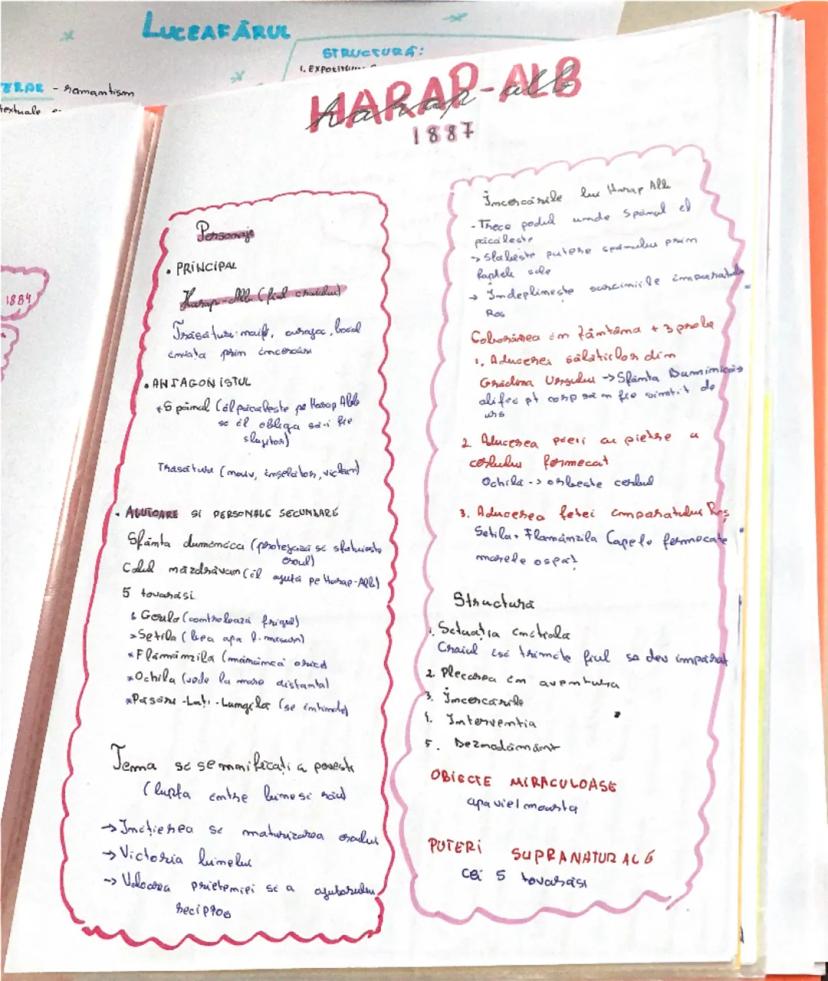 LUCEAFĂRUL
STRUCTURĂ:
1. EXPOZITIUN
- romantism
textuale
1884
HARAP-ALB
harap-alb
1887
Personaje
• PRINCIPAL
Harap-Alb (fiul craiului)
Trăsături: naif, curajos, loial
învata prin încercări
• ANTAGONISTUL
Spânul (îl păcăleste pe Harap Alb
si îl obliga sa-i fie
slujitor)
Trasaturi (inselator, viclean)
• AJUTOARE SI PERSONAJE SECUNDARE
Sfânta dumineca (protejează si sfatuieste
eroul)
Calul măzdrăvan (îl ajută pe Harap-Alb)
5 tovarasi
Gerilă (controlează frigul)
Setila (bea apa
Flămânzila (mănâncă orice)
Ochila (vede la mare distanta)
Păsări-Lați-Lungila (se intinde)
Tema si semnificați a povesti
(lupta intre bine si rău)
→ Inițierea si maturizarea eroului
→ Victoria binelui
→ Valoarea prieteniei si a ajutorului
reciproc
Încercările lui Harap Alb
- Trece podul unde Spânul el
păcăleste
→ Slabeste putere spânului prin
faptele sale
→ Îndeplineste sarcinile împaratului
Ros
Coborârea în fântâna + 3 probe
1. Aducerea sălăților din
Grădina Ursului → Sfânta Duminica
pt corp sa n fie simtit de
urs
2. Aducerea pieli cu pietre a
cerbului fermecat
Ochila → orbeste cerbul
3. Aducerea fetei împaratului Roș
Setila + Flamânzila Capele fermecate
marele ospaț
Structură
1. Situația initiala
Craiul isi trimite fiul sa dev împărat
2. Plecarea în aventura
3. Încercările
4. Interventia
5. Deznodământ
OBIECTE MIRACULOASE
apa vie/moarta
PUTERI SUPRANATURALE
cei 5 tovarasi